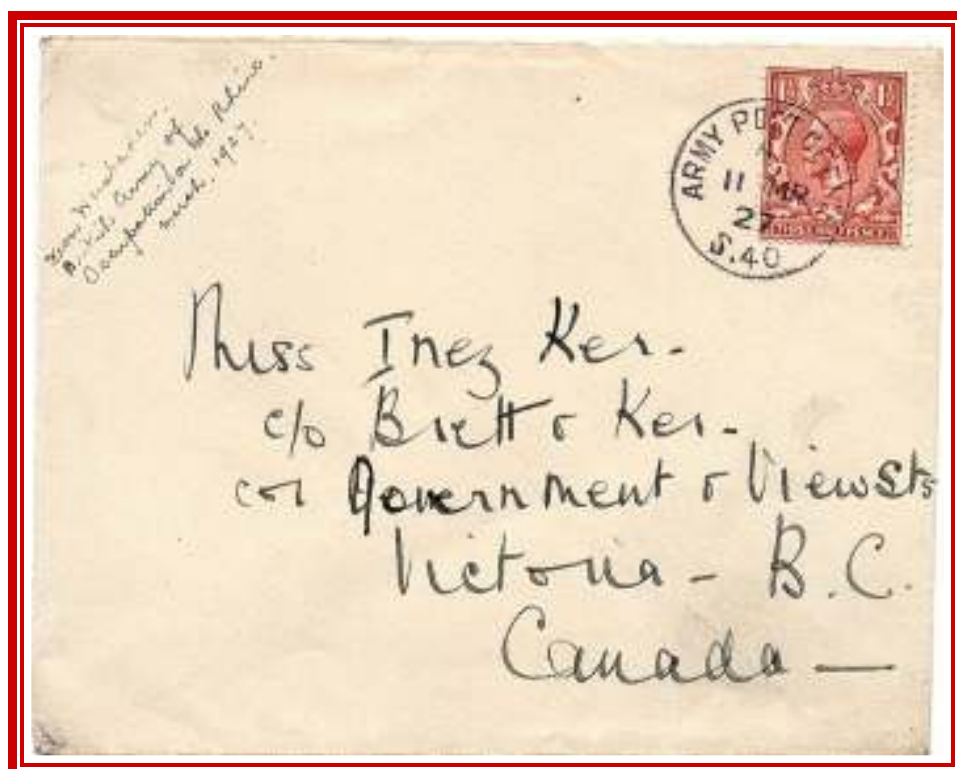 from Windsor.
British Army of
Occupation on the Rhine.
March. 1927.
ARMY POST OFFICE
11 MR
27
S.40
1½ 1½
THREE HALFPENCE
Miss Inez Ker-
c/o Brett & Ker-
cor Government & View Sts
Victoria - B.C.
Canada —